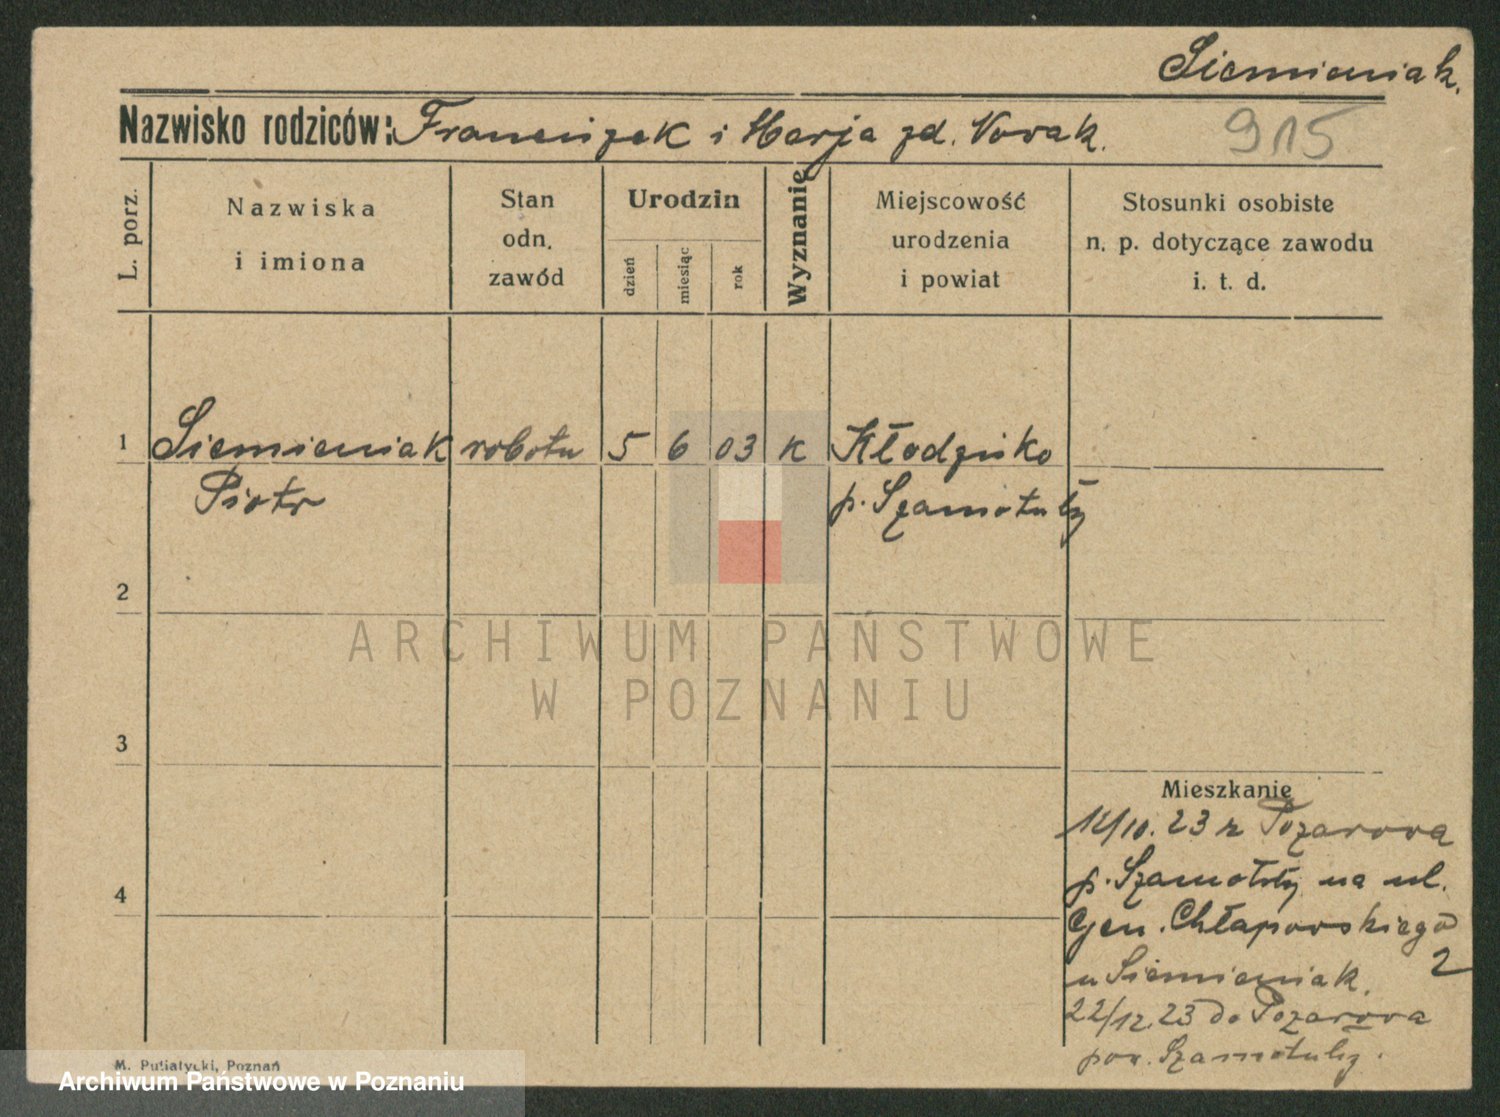 Siemieniak.
Nazwisko rodziców: Franciszek i Marja zd. Novak.
915
L. porz.
Nazwiska
i imiona
Stan
odn.
zawód
Urodzin
dzień
miesiąc
rok
Wyznanie
Miejscowość
urodzenia
i powiat
Stosunki osobiste
n. p. dotyczące zawodu
i. t. d.
1 Siemieniak robotn 5 6 03 k Kłodzisko
Piotr p. Szamotuły
2
ARCHIWUM PAŃSTWOWE
W POZNANIU
3
Mieszkanie
/10. 23 z Pożarova
4
p. Szamotuły na ul.
Gen. Chłapovskiego
2
u Siemieniak.
22/12. 23 do Pożarova
pov. Szamotuły.
M. Putiatycki, Poznań
Archiwum Państwowe w Poznaniu